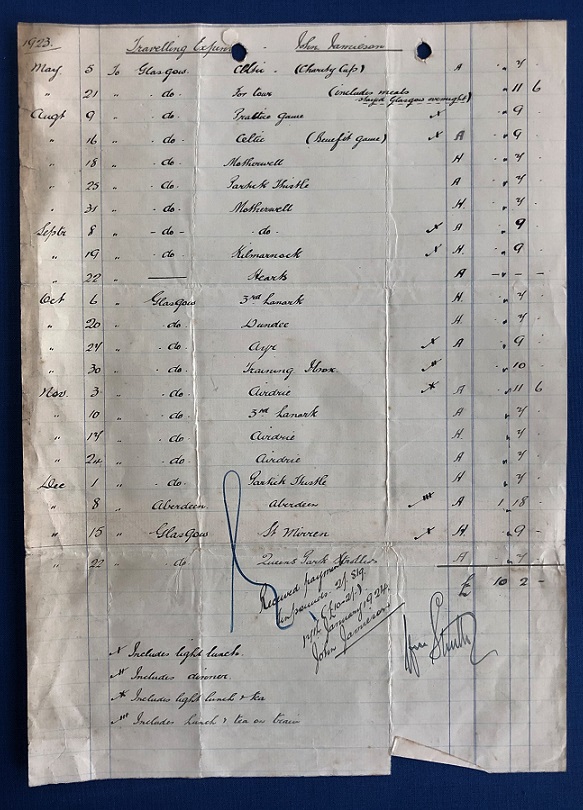 1923. Travelling Expen - John Jamieson
May 5 To Glasgow Celtic - (Charity Cup) A " 7 -
" 21 " - do - For Tour (includes meals stayed Glasgow overnight) " 11 6
Augt 9 " - do - Practice game x " 9 -
" 16 " - do - Celtic (Benefit game) x A " 9 -
" 18 " - do - Motherwell H " 7 -
" 25 " - do - Partick Thistle A " 7 -
" 31 " - do - Motherwell H " 7 -
Septr 8 " - do - - do - x A " 9 -
" 19 " - do - Kilmarnock x H " 9 -
" 22 " — Hearts A - " - -
Oct 6 " Glasgow 3rd Lanark H " 7 -
" 20 " - do - Dundee H " 7 -
" 27 " - do - Ayr x A " 9 -
" 30 " - do - Training Ibrox " 10 -
Nov. 3 " - do - Airdrie A " 11 6
" 10 " - do - 3rd Lanark A " 7 -
" 17 " - do - Airdrie H " 7 -
" 24 " - do - Airdrie A " 7 -
Dec 1 " - do - Partick Thistle H " 7 -
" 8 " Aberdeen Aberdeen A 1 18 -
" 15 " Glasgow St Mirren x H " 9 -
" 22 " do Queens Park Strollers A " 7 -
£ 10 2 -
Received payment
ten pounds 2/- Stg.
(£10-2/-)
17th January 1924.
John Jamieson
Wm Struth
x Includes light lunch.
Includes dinner
Includes light lunch & tea
Includes lunch & tea on train